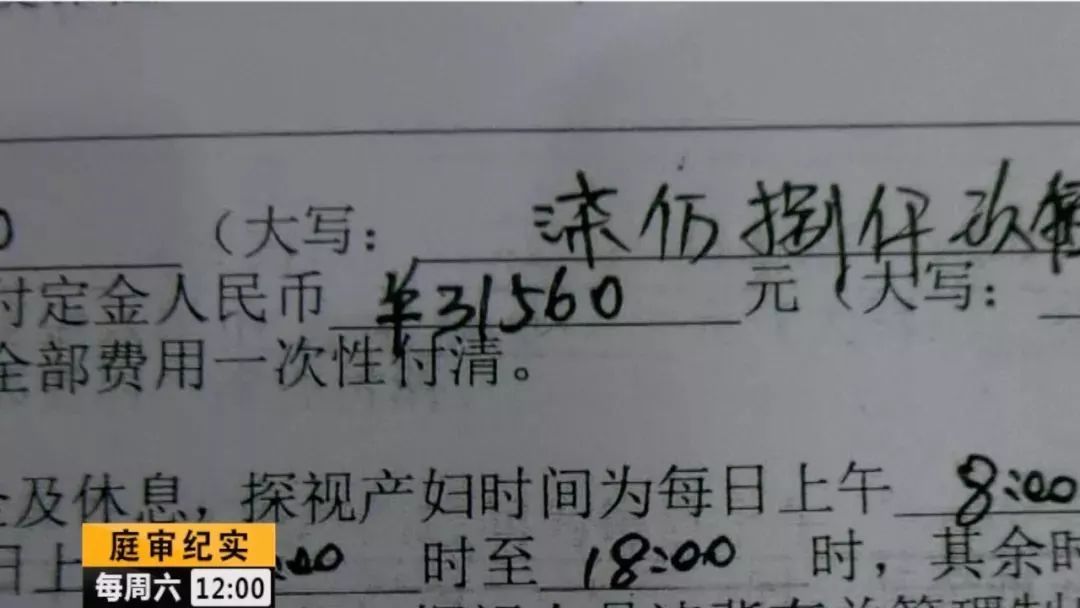 0 （大写： 柒万捌仟玖
付定金人民币 ¥31560 元（大写：
全部费用一次性付清。
及休息，探视产妇时间为每日上午 8:00
日上 :00 时至 18:00 时，其余时
庭审纪实
每周六 12:00